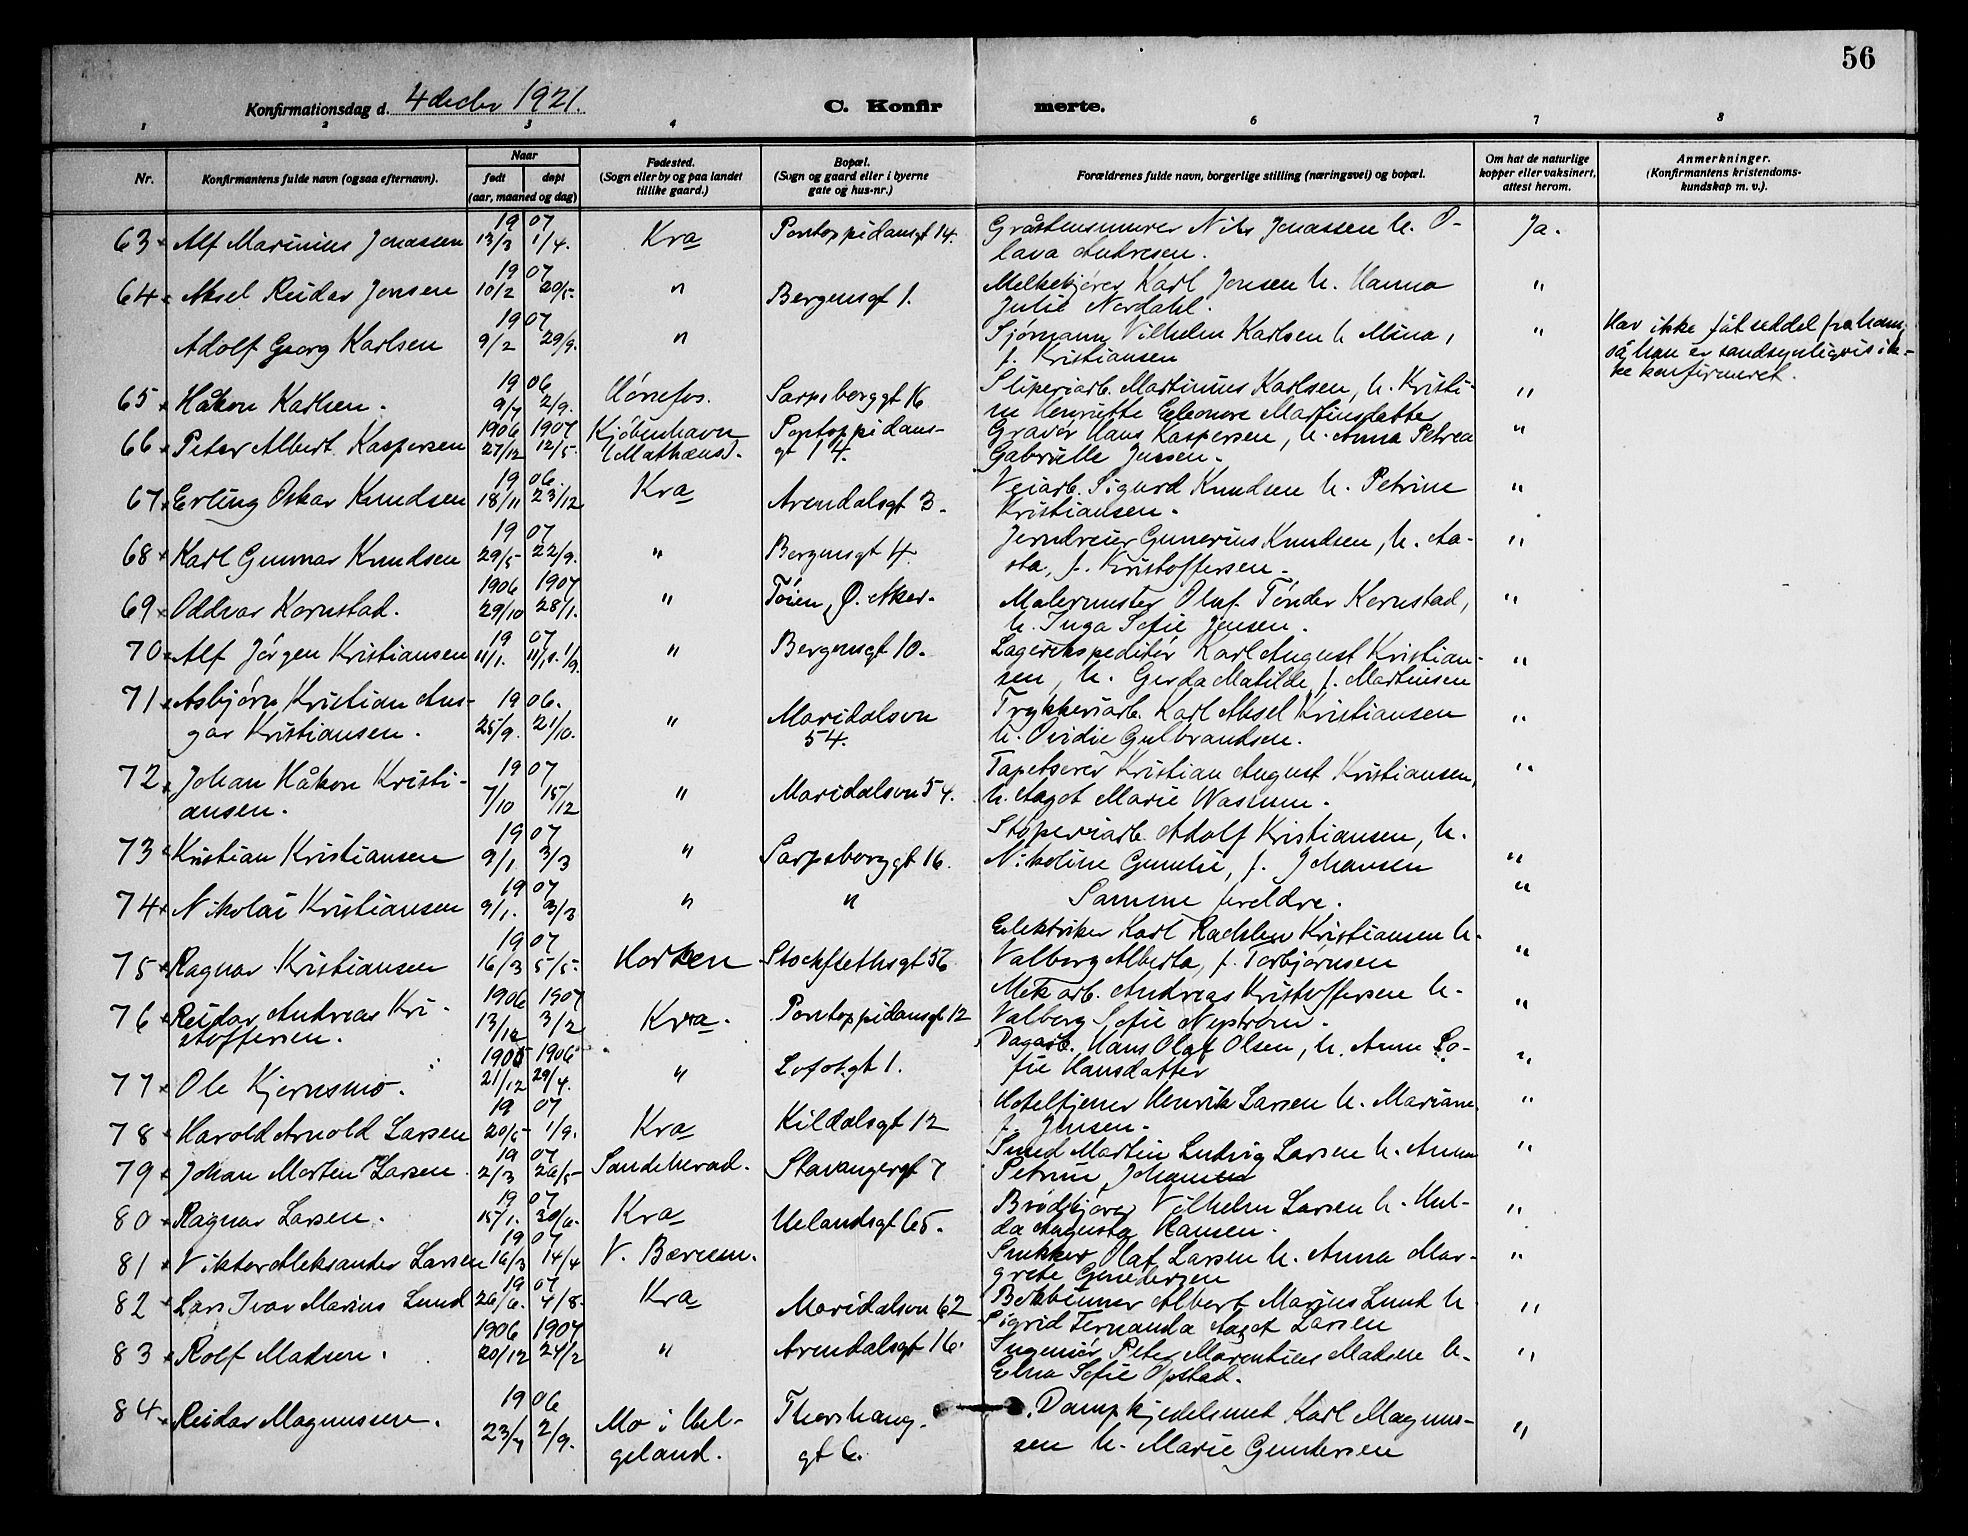 56
Konfirmationsdag d. 4 decbr 1921.
C. Konfirmerte.
1 2 3 4 6 7 8
Nr.
Konfirmantens fulde navn (ogsaa efternavn).
Naar
født
døpt
(aar, maaned og dag)
Fødested.
(Sogn eller by og paa landet
tillike gaard.)
Bopæl.
(Sogn og gaard eller i byerne
gate og hus-nr.)
Forældrenes fulde navn, borgerlige stilling (næringsvei) og bopæl.
Om hat de naturlige
kopper eller vaksinert,
attest herom.
Anmerkninger.
(Konfirmantens kristendoms-
kundskap m. v.).
19 07
63 Alf Marinius Jonassen 13/3 1/4. Kra Pontoppidansgt 14. Gråstensmurer Nils Jonassen h. O- Ja.
lava Andresen.
19 07
64 Aksel Reidar Jensen 10/2 20/5. " Bergensgt 1. Melkekjører Karl Jensen h. Hanna "
Julie Nordahl.
19 07
Adolf Georg Karlsen 9/2 29/9. " Sjømann Vilhelm Karlsen h Mina, " Har ikke fåt seddel fra ham,
f. Kristiansen så han er sandsynligvis ik-
ke konfirmeret.
19 06
65 Håkon Karlsen. 9/7 2/9. Hønefos. Sarpsborggt 16 Sliperiarb. Martinius Karlsen, h. Kristi- "
ne Henriette Eleonore Martinsdatter
1906 1907
66 Peter Albert Kaspersen 27/12 12/5. Kjøbenhavn Pontoppidans- Gravør Hans Kaspersen, h. Anna Petrea "
(Mathæus). gt 14. Gabrielle Jensen.
19 06.
67 Erling Oskar Knudsen 18/11 23/12 Kra Arendalsgt 3. Veiarb. Sigurd Knudsen h. Petrine "
Kristiansen.
19 07
68 Karl Gunnar Knudsen 29/5 22/9. " Bergensgt 4. Jerndreier Gunerius Knudsen, h. Aa- "
sta, f. Kristoffersen.
1906 1907
69 Oddvar Kornstad. 29/10 28/1. " Tøien, Ø. Aker. Malermester Olaf Tønder Kornstad, "
h. Inga Sofie Jensen.
19 07
70 Alf Jørgen Kristiansen 11/1. 1/9. " Bergensgt 10. Lagerekspeditør Karl August Kristian- "
sen, h. Gerda Matilde, f. Martinsen
71 Asbjørn Kristian Ans- 19 06. Trykkeriarb. Karl Aksel Kristiansen
gar Kristiansen. 25/9. 21/10. " Maridalsvn 54. h. Ovidie Gulbrandsen. "
19 07
72 Johan Håkon Kristi- Tapetserer Kristian August Kristiansen, "
ansen. 7/10 15/12 " Maridalsvn 54. h. Aagot Marie
19 07
73 Kristian Kristiansen 9/1 3/3 " Sarpsborggt 16. Støperiarb. Adolf Kristiansen, h.
Nikoline Gunelie, f. Johansen "
19 07
74 Nikolai Kristiansen 9/1. 3/3 " " Samme foreldre. "
19 07
75 Ragnar Kristiansen 16/3 5/5. Horten Stockflethsgt 56 Elektriker Karl Kristiansen h.
Valborg Alberta, f. Torbjørnsen "
1906 1907
76 Reidar Andreas Kri- 13/12 3/2 Kra. Pontoppidansgt 12 Mek arb. Andreas Kristoffersen h. "
stoffersen. Valborg Sofie Nystrøm.
1905 1906
77 Ole Kjernsmo. 21/12 29/4. " Lofotgt 1. Dagarb. Hans Olaf Olsen, h. Anne So- "
fie Hansdatter
19 07
78 Harald Arnold Larsen 20/5 1/9. Kra Kildalsgt 12 Hoteltjener Henrik Larsen h. Mariane "
f. Jensen.
19 07
79 Johan Morten Larsen. 2/3 26/5 Sandeherad. Stavangergt 7 Smed Martin Ludvig Larsen h. Anna "
Petrine Johansen
19 07
80 Ragnar Larsen. 15/1. 30/6. Kra Uelandsgt 65. Brødkjører Vilhelm Larsen h. Hul- "
da Augusta Hansen.
19 07
81 Viktor Aleksander Larsen 16/3 14/4 V. Bærum. Snekker Olaf Larsen h. Anna Mar- "
grete Gundersen
19 07
82 Lars Ivar Marius Lund 26/6. 4/8. Kra Maridalsvn 62 Bokbinner Albert Marius Lund h "
Sigrid Fernanda Aagot Larsen
1906 1907
83 Rolf Madsen. 20/12 24/2 " Arendalsgt 16. Ingeniør Peter Marentius Madsen h. "
Elna Sofie Opstad.
19 06
84 Reidar Magnussen. 23/7 2/9. Mo i Hel- Thorshaug- Dampkjedelsmed Karl Magnus- "
geland. gt 6. sen h. Marie Gundersen